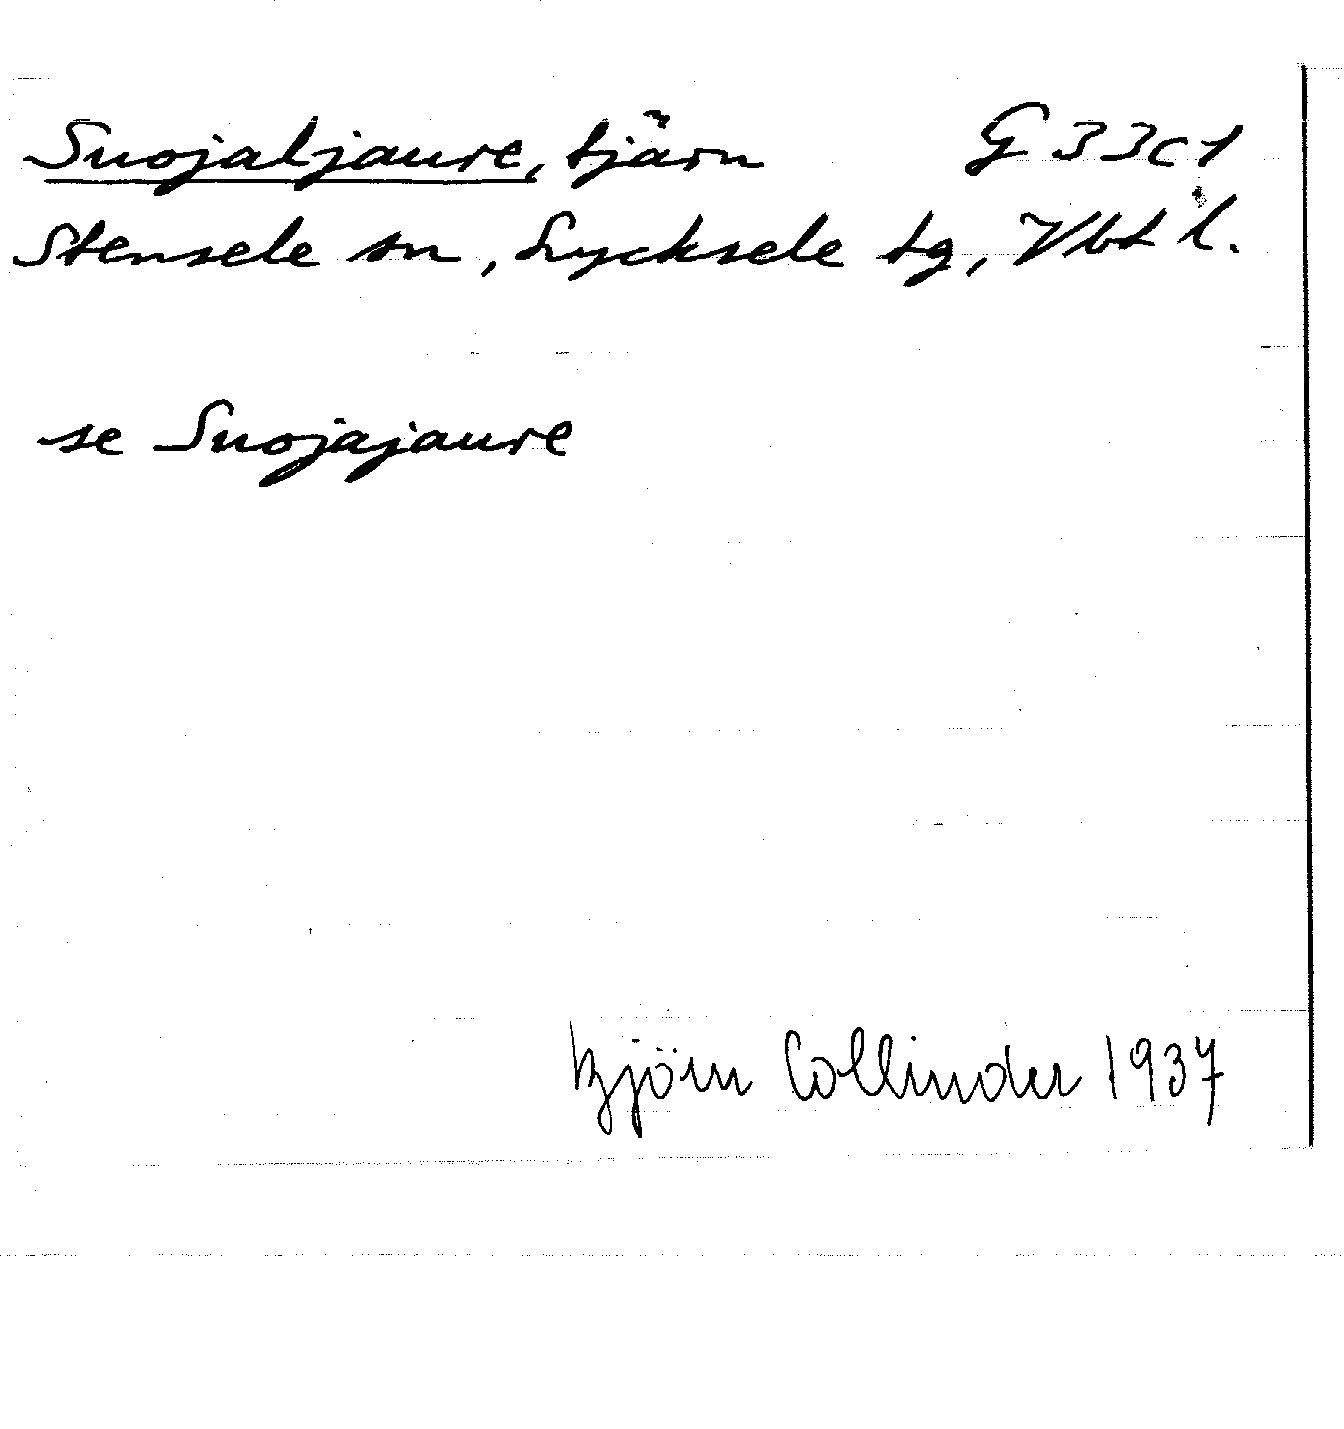 Suojaljaure, tjärn G 33c1
Stensele sn, Lycksele tg, Vbt l.
se Suojajaure
Björn Collinder 1937